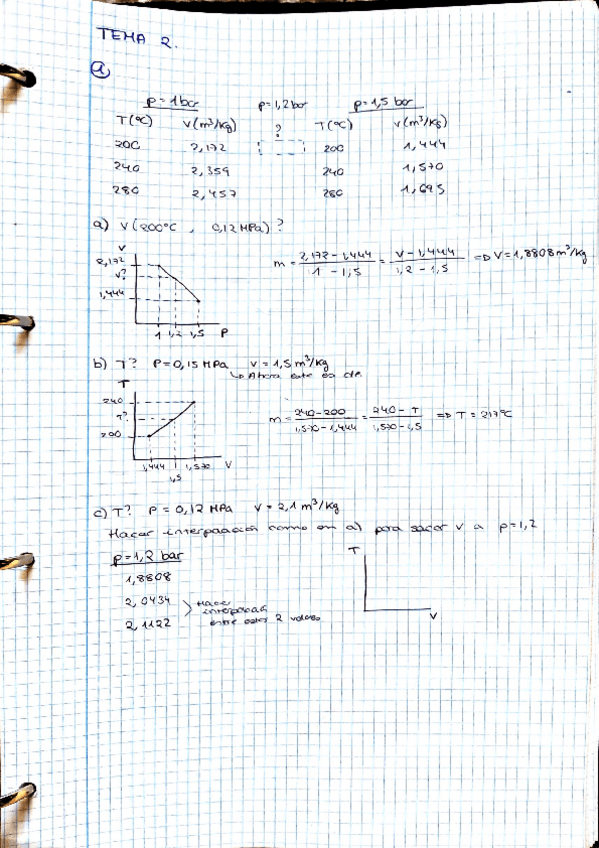 TEMA 2.
1
p=1bar p=1,2bar p=1,5 bar
T(ºC) V(m³/kg) ? T(ºC) V(m³/kg)
200 2,172 200 1,444
240 2,359 240 1,570
280 2,457 280 1,695
a) V(200ºC , 0,12 MPa) ?
V
2,172
V?
1,444
1 1,2 1,5 P
m = (2,172 - 1,444)/(1 - 1,5) = (V - 1,444)/(1,2 - 1,5) => V = 1,8808 m³/kg
b) T? P=0,15 MPa V=1,5 m³/kg
↳ Ahora esta es cte.
T
240
T?
200
1,444 1,570 V
1,5
m = (240-200)/(1,570-1,444) = (240-T)/(1,570-1,5) => T = 217ºC
c) T? P = 0,12 MPa V = 2,1 m³/kg
Hacer interpolación como en a) para sacar V a p=1,2
p=1,2 bar
1,8808
2,0434
2,1122
Hacer
interpolación
entre estos 2 valores
T
V